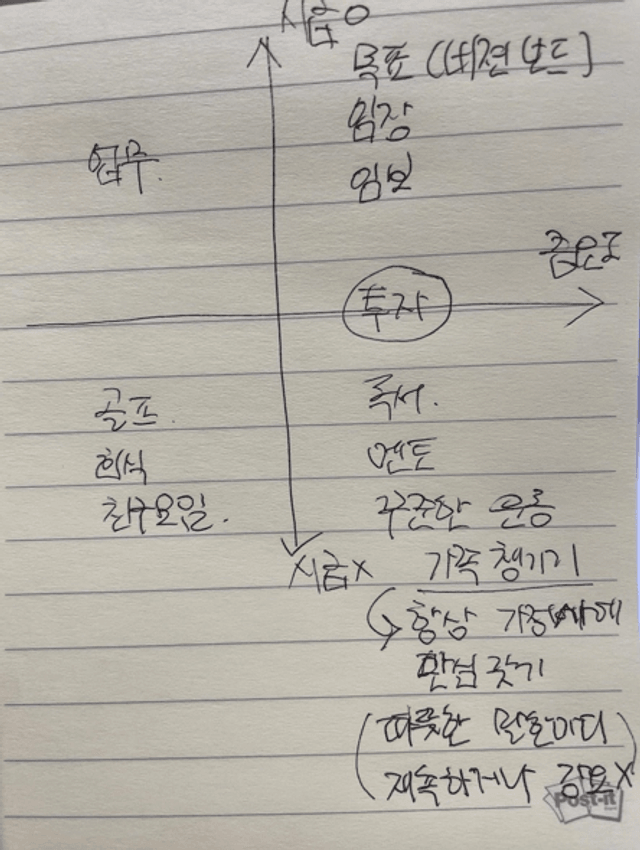 시급O
목표 (비젼보드)
임장
임보
업무.
중요도
투자
골프.
회식
친구모임.
독서.
멘토
꾸준한 운동
시급X
가족 챙기기
항상 가정사에
관심 갖기
(따뜻한 말한마디
재촉하거나 강요X)
Post-it